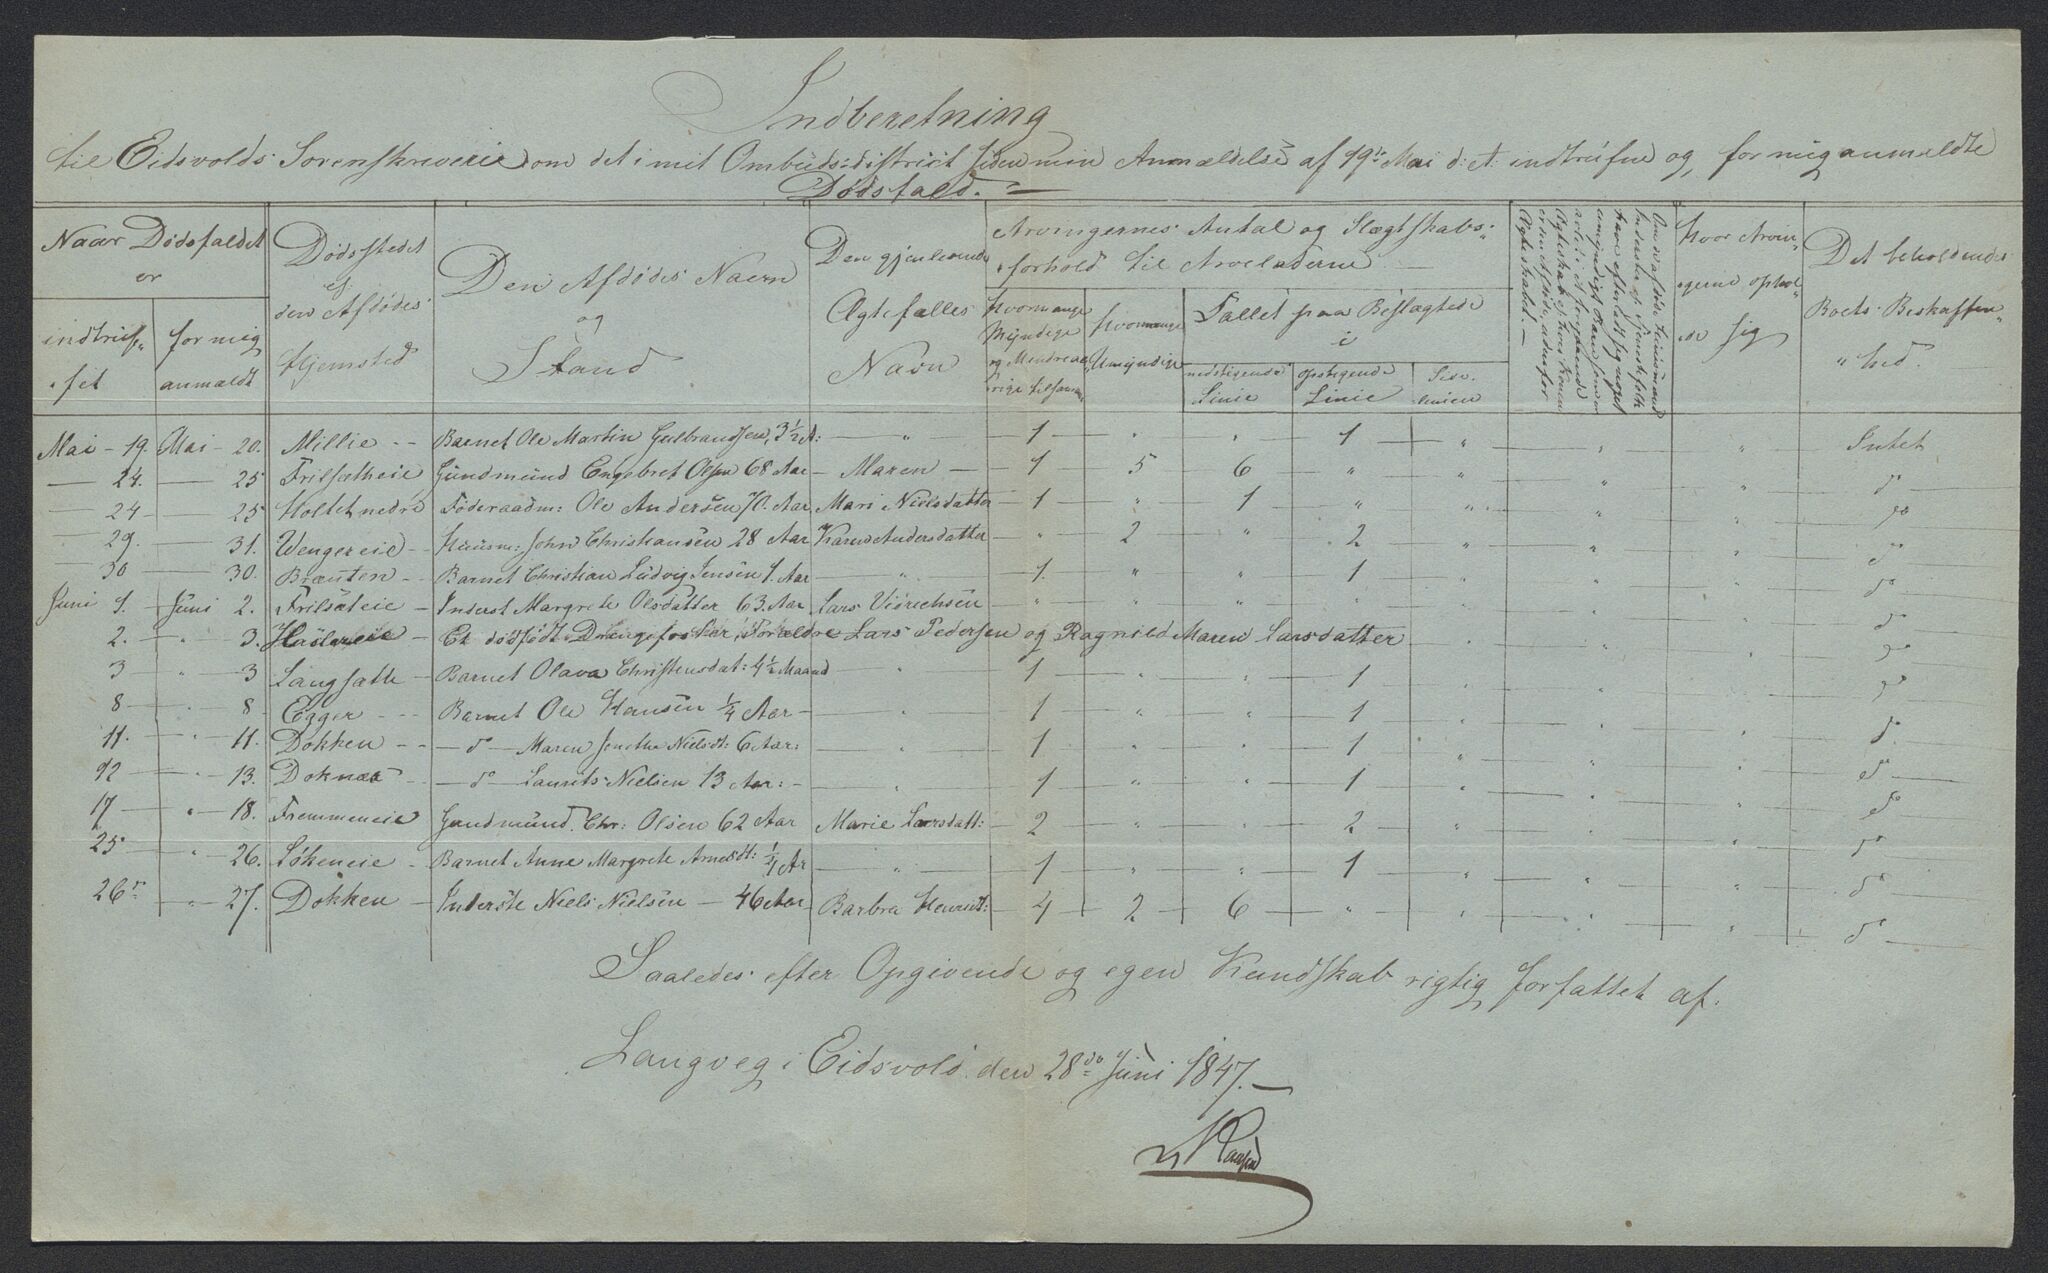 Indberetning
til Eidsvolds Sorenskriverie om det i mit Ombuds-district siden min Anmældelse af 19de Mai d: A: indtrufne og, for mig anmeldte
Dødsfald. —
Naar Dødsfaldet
er
indtruf-
fet
for mig
anmeldt
Dødsstedet
og
den Afdødes
Hjemsted
Den Afdødes Navn
og
Stand
Den gjenlevende
Ægtefælles
Navn
Arvingernes Antal og Slægtskabs-
forhold til Arveladerne —
Hvormange
Myndige
og Mindreaa-
rige tilsam:
Hvormange
Umyndige
Tallet paa Beslægtede
i
nedstigende
Linie
opstigende
Linie
Side-
linien
Om den afdøde Huusmand
Inderste og Tjenestfolk
have efterladt sig noget
umyndigt Barn som er
avlet i et foregaaende
Ægteskab og hvis Konen
er den Afdøde, udenfor
Ægteskabet. —
Hvor Arvin-
gerne ophol-
de sig
Det beholdende
Boets Beskaffen-
hed.
Mai — 19. Mai — 20. Millie -- Barnet Ole Martin Gulbrandsen, 3½ A: — " — 1 " " 1 " " " Intet
— 24. — 25 Frilsætheie Gaudmand Engebret Olsen 68 Aar — Maren — 1 5 6 " " " " do
— 24 — 25 Holtet nedre Føderaadm: Ole Andersen 70. Aar Mari Nielsdatter — 1 " 1 " " " " do
— 29. — 31. Wengereie -- Huusm: John Christiansen 28 Aar Karen Andersdatter — " 2 " 2 " " " do
— 30 — 30. Brænten -- Barnet Christian Ludvig Jensen 1. Aar — " — 1. " " 1 " " " do
Juni 1. — Juni 2. Frilsæteie — Inderst Margrete Olsdatter 63. Aar Lars Didrichsen — " " " " " " " do
2. " 3. — Et dødfødt Drengefoster, Forældre Lars Pedersen og Ragnild Maren Larsdatter " " " do
3 — " — 3 Langsæth — Barnet Olava Christensdat: 4½ Maaned — " — 1 " " 1 " " " do
8 — " — 8 -- Barnet Ole Hansen ¼ Aar — " — 1 " " 1 " " " do
11. — " — 11. Dokken -- — do — Maren Jenethe Nielsdt: 6 Aar: — " — 1 " " 1 " " " do
12 — " — 13. Doknæs -- — do — Laurits Nielsen 13 Aar: — " — 1 " " 1 " " " do
17 — " — 18. Fremmeneie Gaudmand Chr: Olsen 62 Aar Marie Larsdatt: — 2 " " 2 " " " do
25 — " — 26. Løkeneie — Barnet Anne Margrete Arnesdt: ¼ Ar — " — 1 " " 1 " " " do
26de " — 27. Dokken — Inderste Niels Nielsen — 46 Aar Barbra Henrichsdt: — 4 2 6 " " " " do
Saaledes efter Opgivende og egen Kundskab rigtig forfattet af.
Langveg i Eidsvold den 28de Juni 1847. —